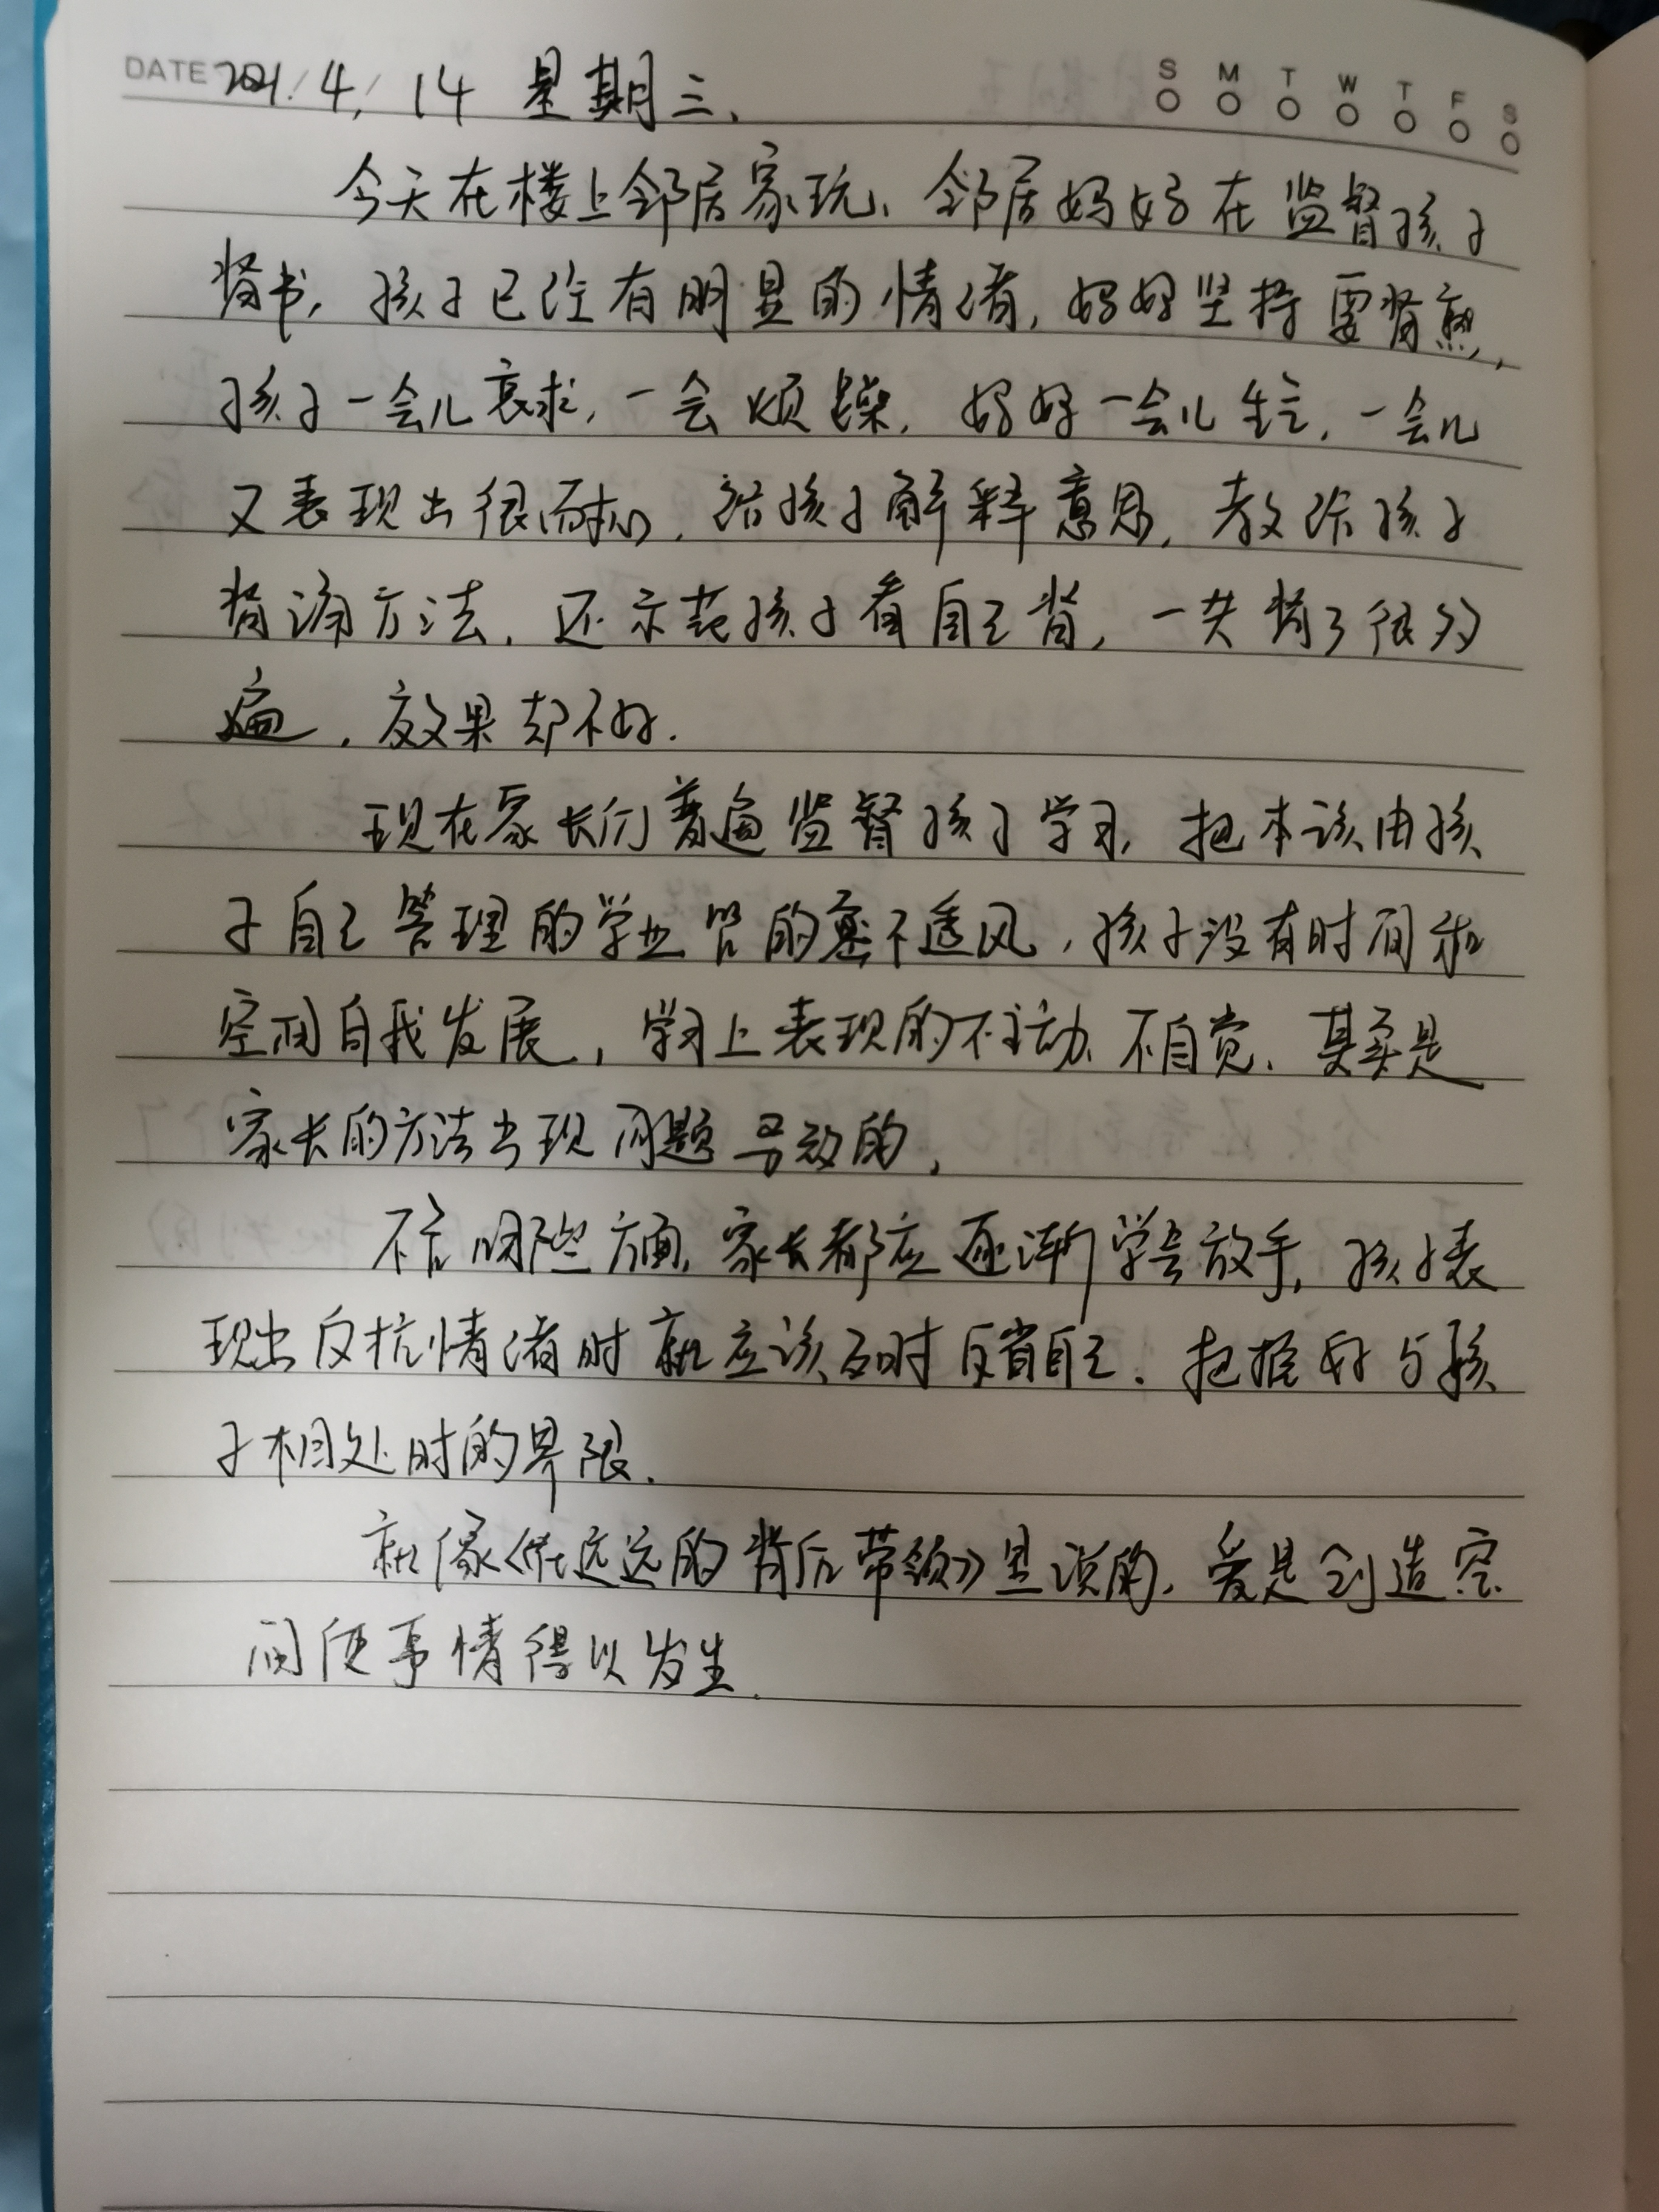 DATE 2021/4/14 星期三.
S M T W T F S
今天在楼上邻居家玩、邻居妈妈在监督孩子
背书，孩子已经有明显的情绪，妈妈坚持要背熟，
孩子一会儿哀求，一会烦躁，妈妈一会儿生气，一会儿
又表现出很耐心，给孩子解释意思，教给孩子
背诵方法，还示范孩子看自己背，一共背了很多
遍，效果却不好.
现在家长们普遍监督孩子学习，把本该由孩
子自己管理的学业管的密不透风，孩子没有时间和
空间自我发展，学习上表现的不主动、不自觉、其实是
家长的方法出现问题导致的，
不管哪些方面，家长都应逐渐学会放手，孩子表
现出反抗情绪时就应该及时反省自己．把握好与孩
子相处时的界限．
就像《在远远的背后带领》里说的，爱是创造空
间使事情得以发生．